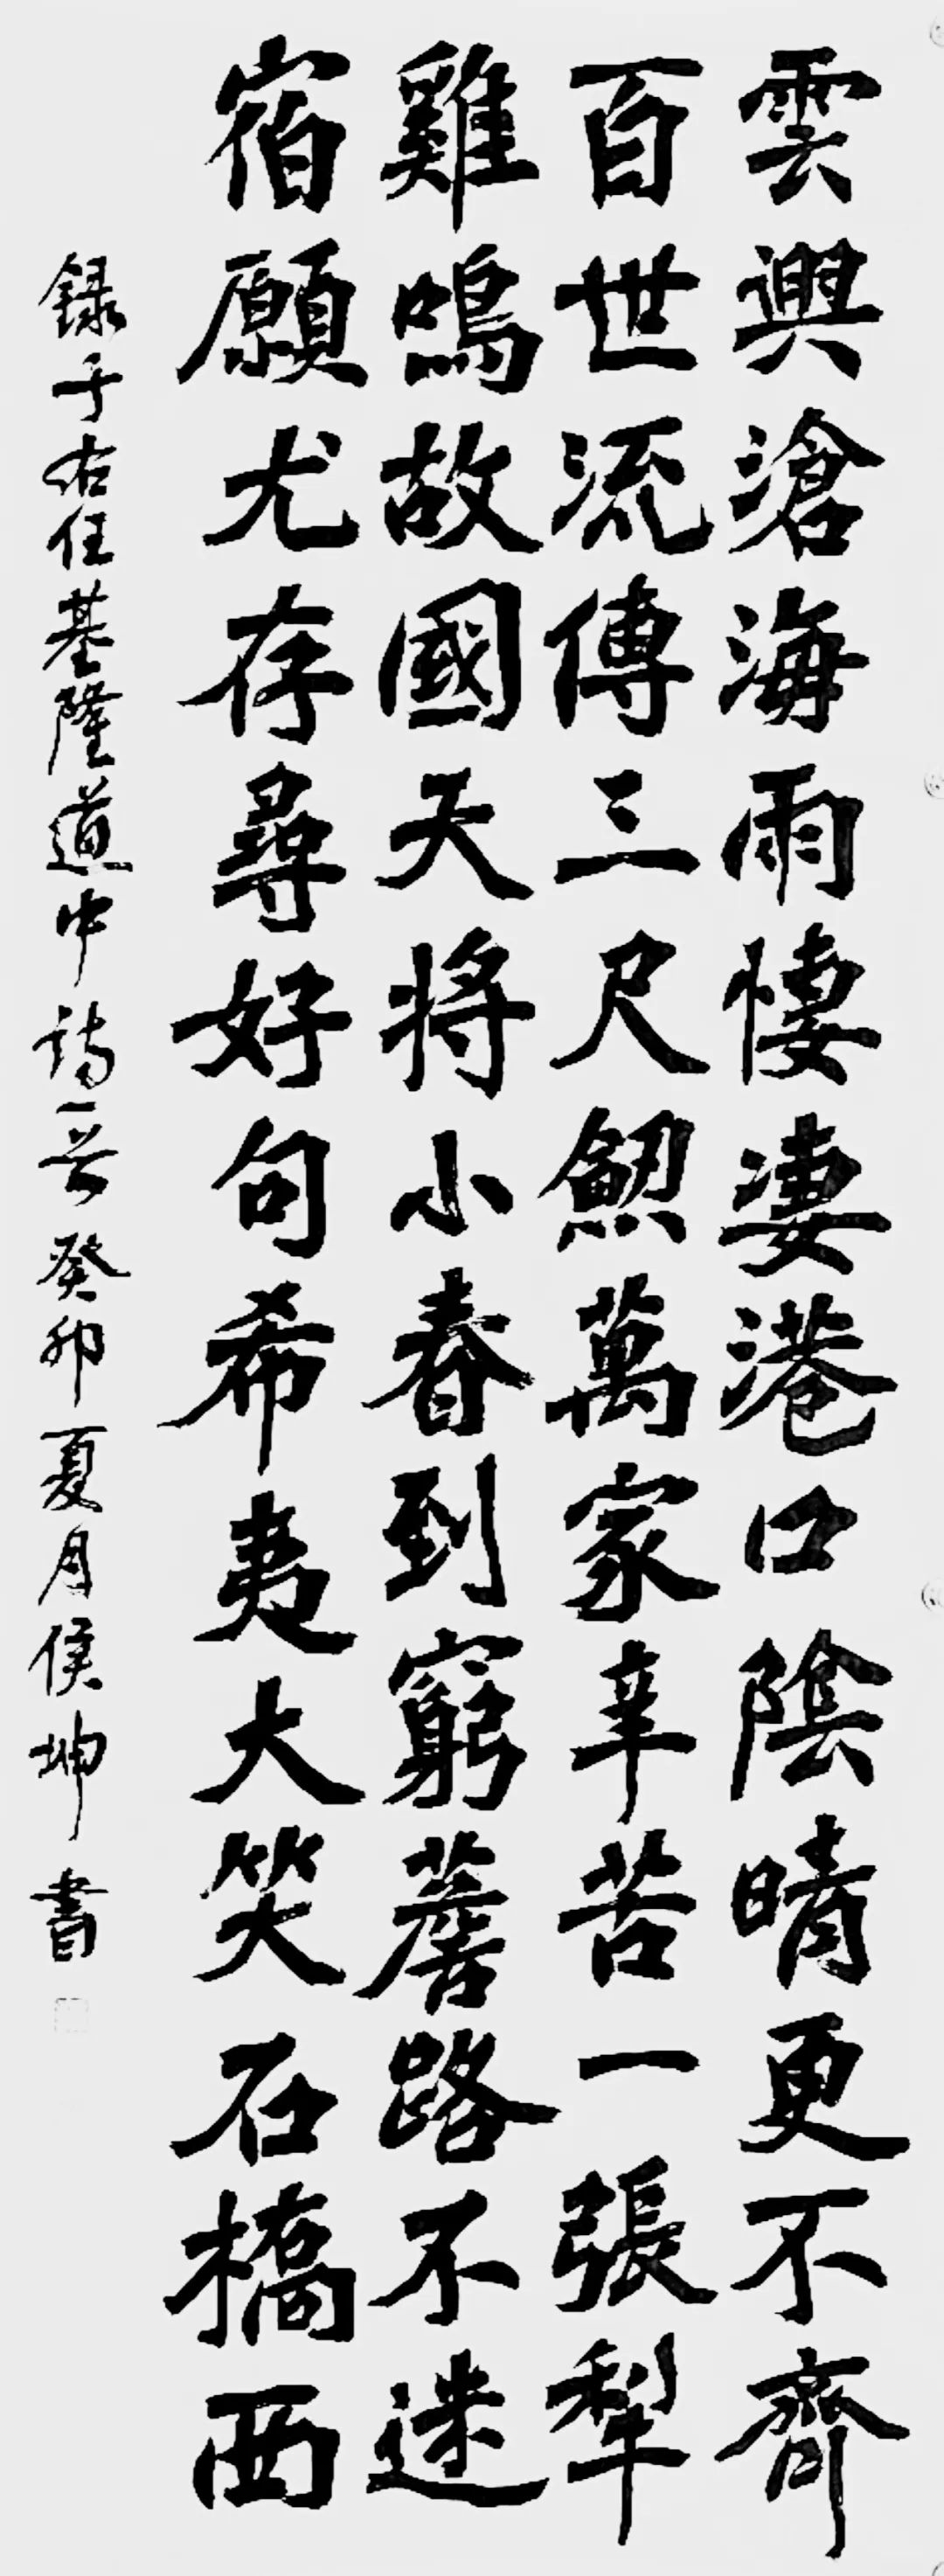 雲興滄海雨悽淒港口陰晴更不齊
百世流傳三尺劒萬家辛苦一張犁
雞鳴故國天將小春到窮簷路不迷
宿願尤存尋好句希夷大笑石橋西
錄于右任基隆道中詩一首癸卯夏月侯坤書